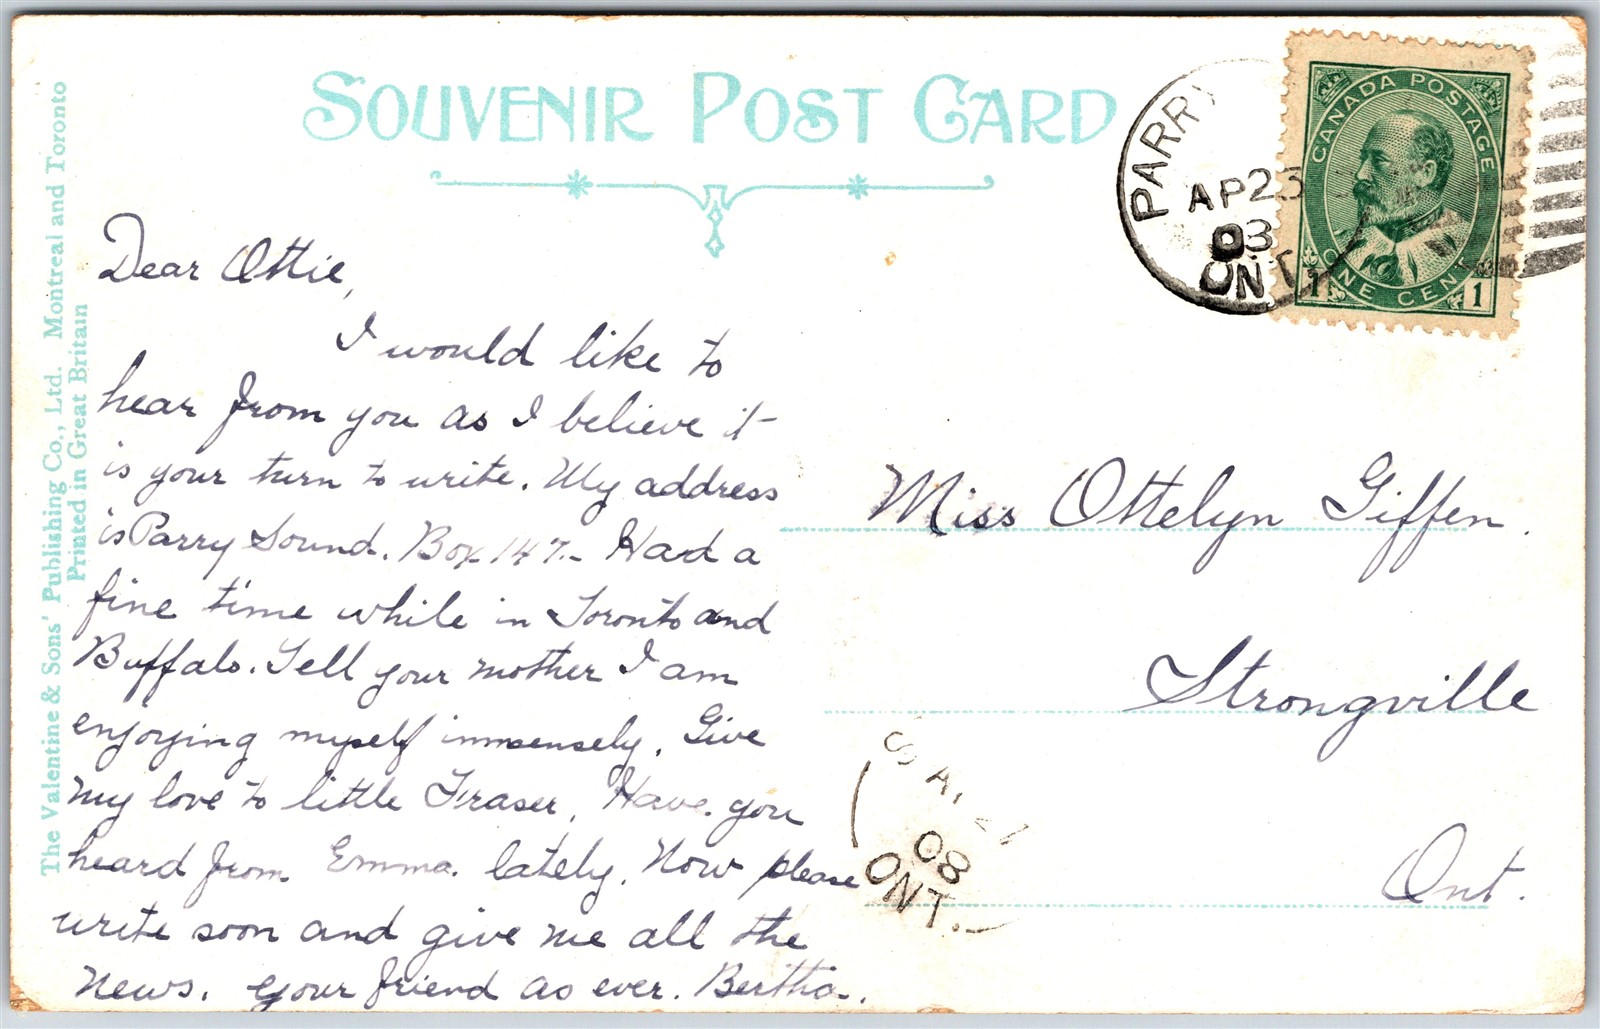 SOUVENIR POST CARD
The Valentine & Sons' Publishing Co., Ltd. Montreal and Toronto
Printed in Great Britain
PARRY
AP 23
03
ONT
CANADA POSTAGE
ONE CENT
1 1
Dear Ottie,
I would like to
hear from you as I believe it
is your turn to write. My address
is Parry Sound. Box 147. Had a
fine time while in Toronto and
Buffalo. Tell your mother I am
enjoying myself immensely. Give
my love to little Fraser. Have you
heard from Emma. lately. Now please
write soon and give me all the
News. your friend as ever. Bertha.
Miss Ottelyn Giffen.
Strongville
Ont.
08
ONT.